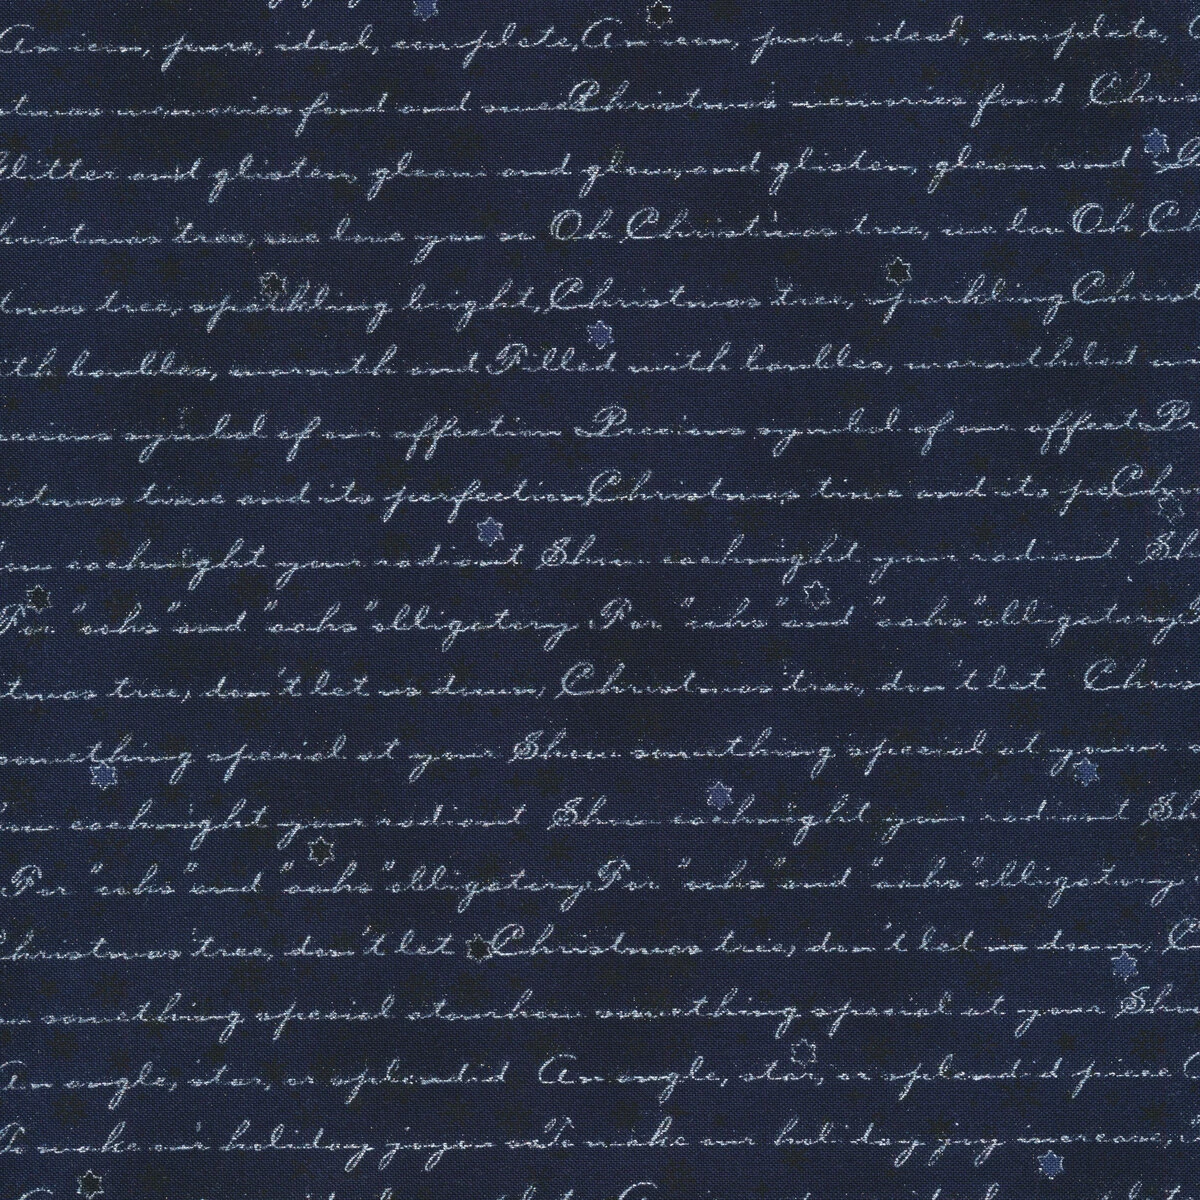 An icon, pure, ideal, complete, An icon, pure, ideal, complete,
tmas memories fond and swee Christmas memories fond Chris
Glitter and glisten, gleam and glow, and glisten, gleam and
hristmas tree, we love you so Oh, Christmas tree, we lov Oh, Ch
tmas tree, sparkling bright, Christmas tree, sparkling Christ
ith baubles, warmth and Filled with baubles, warmth
ecious symbol of our affection Precious symbol of our affect Pr
istmas time and its perfection Christmas time and its pe Chr
ow each night your radiant Show each night your radiant Sh
For "oohs" and "aahs" obligatory For "oohs" and "aahs" obligatory
tmas tree, don't let us down, Christmas tree, don't let Chris
something special at your Show something special at your
each night your radiant Show each night your radiant Sh
For "oohs" and "aahs" obligatory For "oohs" and "aahs" obligatory
Christmas tree, don't let Christmas tree, don't let us down, C
something special at something special at your Show
An angle, star, or splendid An angle, star, or splendid piece
To make our holiday joy To make our holiday joy increase,